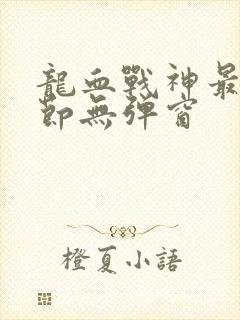 龍血戰神最
節無彈窗
橙夏小語